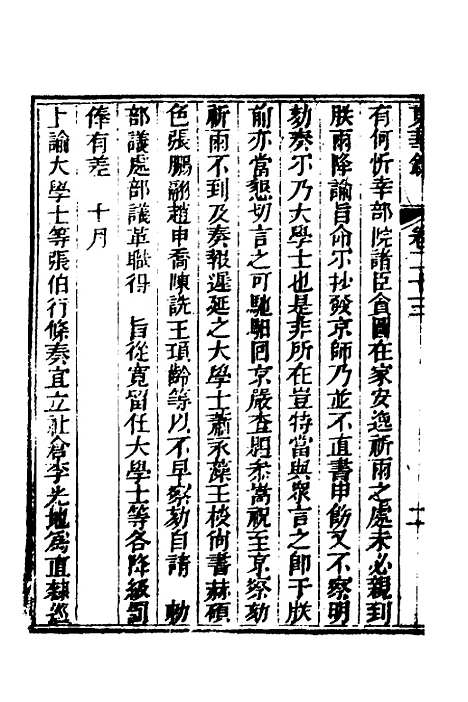 東華錄 卷二十三
有何忻幸部院諸臣食圖在家安逸祈雨之處未必親到
朕雨降諭旨命尔抄發京師乃並不直書申飭又不察明
劾奏尔乃大學士也是非所在豈特當與眾言之即于朕
前亦當懇切言之可馳驲回京嚴查題叅嵩祝至京察劾
祈雨不到及奏報遲延之大學士蕭永藻王掞尙書赫碩
色張鵬翮趙申喬陳詵王頊齡等以不早察劾自請 勅
部議處部議革職得 旨從寬留任大學士等各降級罰
俸有差 十月
上諭大學士等張伯行條奏宜立社倉李光地爲直隸巡